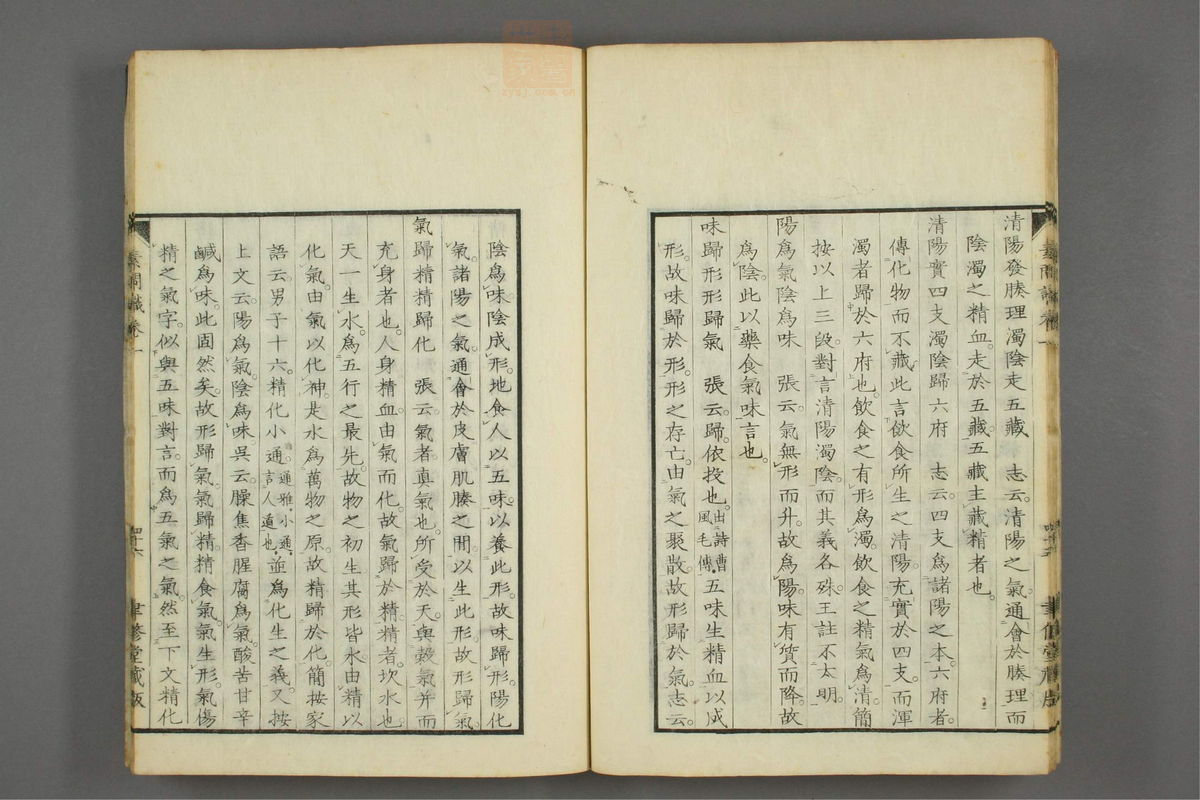 清陽發腠理濁陰走五藏　志云。清陽之氣。通會於腠理。而
陰濁之精血。走於五藏。五藏主藏精者也。
清陽實四支濁陰歸六府　志云。四支爲諸陽之本。六府者。
傳化物而不藏。此言飲食所生之清陽。充實於四支。而渾
濁者歸於六府也。飲食之有形爲濁。飲食之精氣爲清。簡
按以上三段。對言清陽濁陰。而其義各殊。王註不太明。
陽爲氣陰爲味　張云。氣無形而升。故爲陽。味有質而降。故
爲陰。此以藥食氣味言也。
味歸形形歸氣　張云。歸。依投也。出詩曹風毛傳。五味生精血以成
形。故味歸於形。形之存亡。由氣之聚散。故形歸於氣。志云。
陰爲味。陰成形。地食人以五味。以養此形。故味歸形。陽化
氣。諸陽之氣。通會於皮膚肌腠之間。以生此形。故形歸氣。
氣歸精精歸化　張云。氣者。真氣也。所受於天。與穀氣并而
充身者也。人身精血。由氣而化。故氣歸於精。精者。坎水也。
天一生水。爲五行之最先。故物之初生。其形皆水。由精以
化氣。由氣以化神。是水爲萬物之原。故精歸於化。簡按家
語云。男子十六。精化小通。通雅。小通。言人道也。並爲化生之義。又按
上文云。陽爲氣。陰爲味。吳云。臊焦香腥腐爲氣。酸苦甘辛
鹹爲味。此固然矣。故形歸氣。氣歸精。精食氣。氣生形。氣傷
精之氣字。似與五味對言。而爲五氣之氣。然至下文精化
素問識卷一
四十六
聿修堂藏版